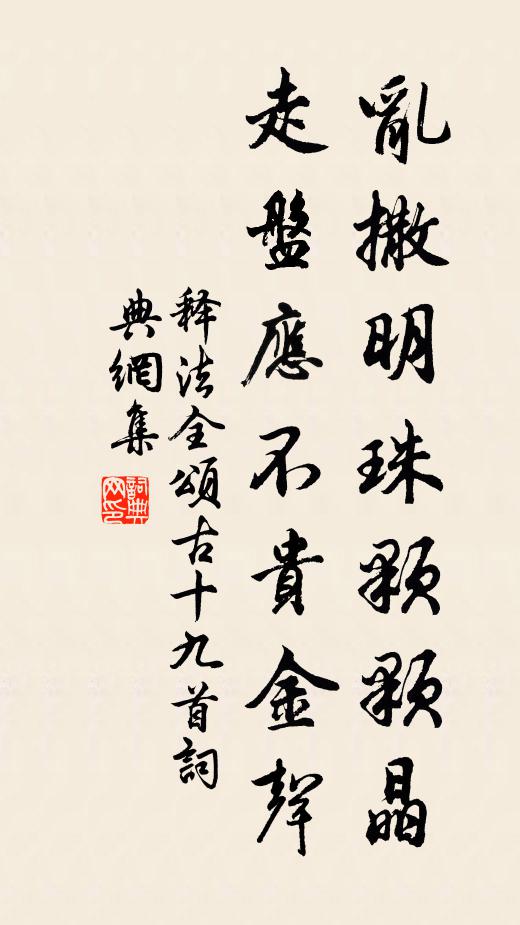 亂撒明珠顆顆晶
走盤應不貴金聲
释法全頌古十九首詞
典網集
詞典网印